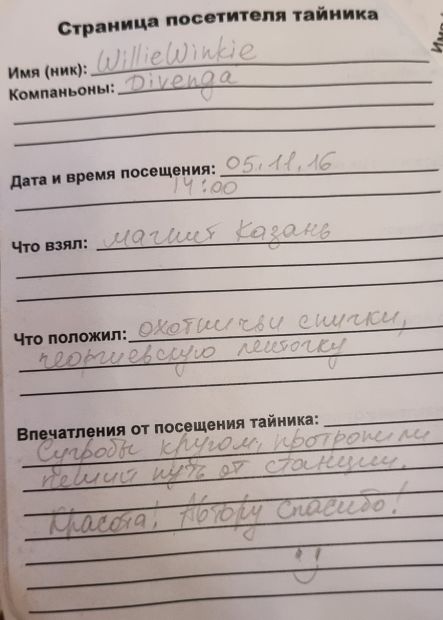 Страница посетителя тайника
Имя (ник): WillieWinkie
Компаньоны: Divenga
Дата и время посещения: 05.11.16
14:00
Что взял: магнит Казань
Что положил: охотничьи спички,
георгиевскую ленточку
Впечатления от посещения тайника:
Сугробы кругом, протропили
пеший путь от станции.
Красота! Автору спасибо!